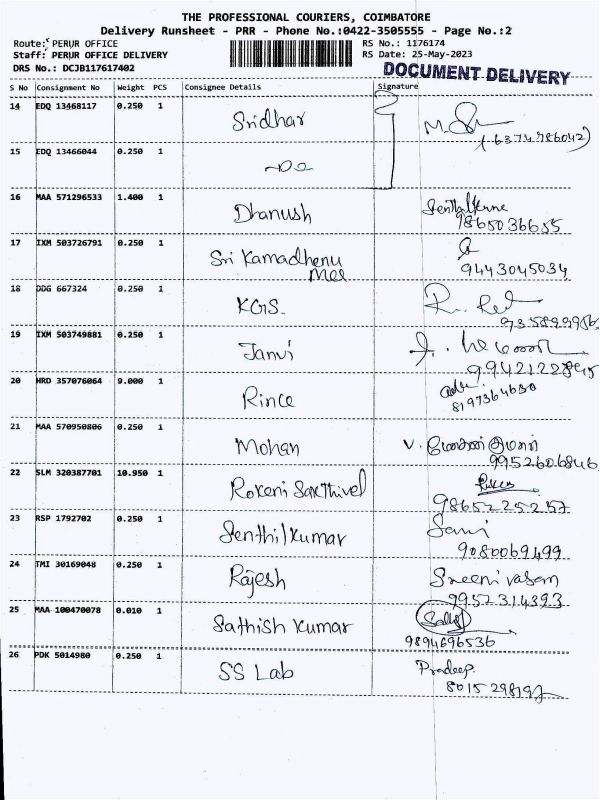 THE PROFESSIONAL COURIERS, COIMBATORE
Delivery Runsheet - PRR - Phone No.:0422-3505555 - Page No.:2
Route: PERUR OFFICE RS No.: 1176174
Staff: PERUR OFFICE DELIVERY RS Date: 25-May-2023
DRS No.: DCJB117617402 DOCUMENT DELIVERY
S No Consignment No Weight PCS Consignee Details Signature
14 EDQ 13468117 0.250 1 Sridhar
(6374786042)
15 EDQ 13466044 0.250 1
16 MAA 571296533 1.400 1 Dhanush
9865036655
17 IXM 503726791 0.250 1 Sri Kamadhenu
9443045034
18 DDG 667324 0.250 1 KGS
19 IXM 503749881 0.250 1 Janvi
20 HRD 357076064 9.000 1 Rince
8197364630
21 MAA 570950806 0.250 1 Mohan V.
9952606846
22 SLM 320387701 10.950 1 Rokeni Sakthivel
9865225257
23 RSP 1792702 0.250 1 Senthilkumar
9080069499
24 TMI 30169048 0.250 1 Rajesh Sreenivasan
9952314393
25 MAA 100470078 0.010 1 Sathish Kumar
9894696536
26 PDK 5014980 0.250 1 SS Lab Pradeep.